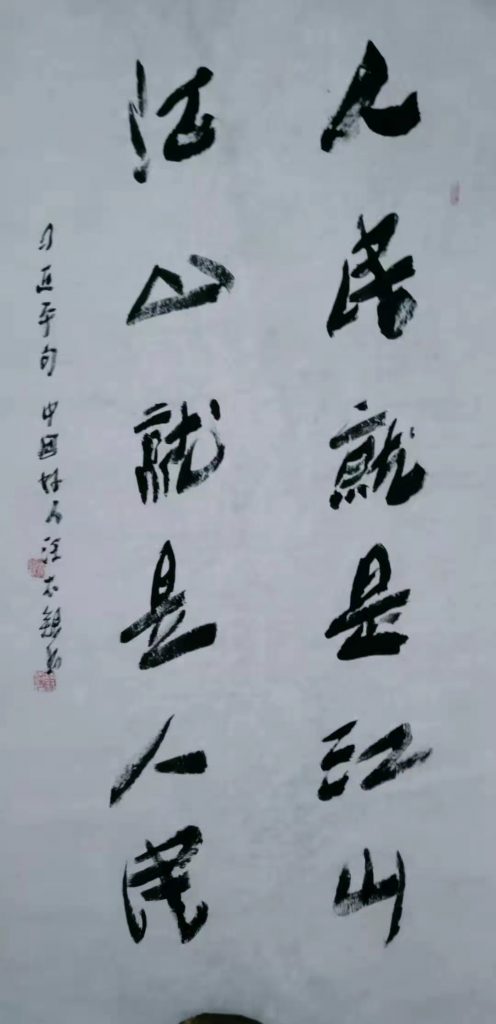 人民就是江山
江山就是人民
习近平句 中国好人汪志银书